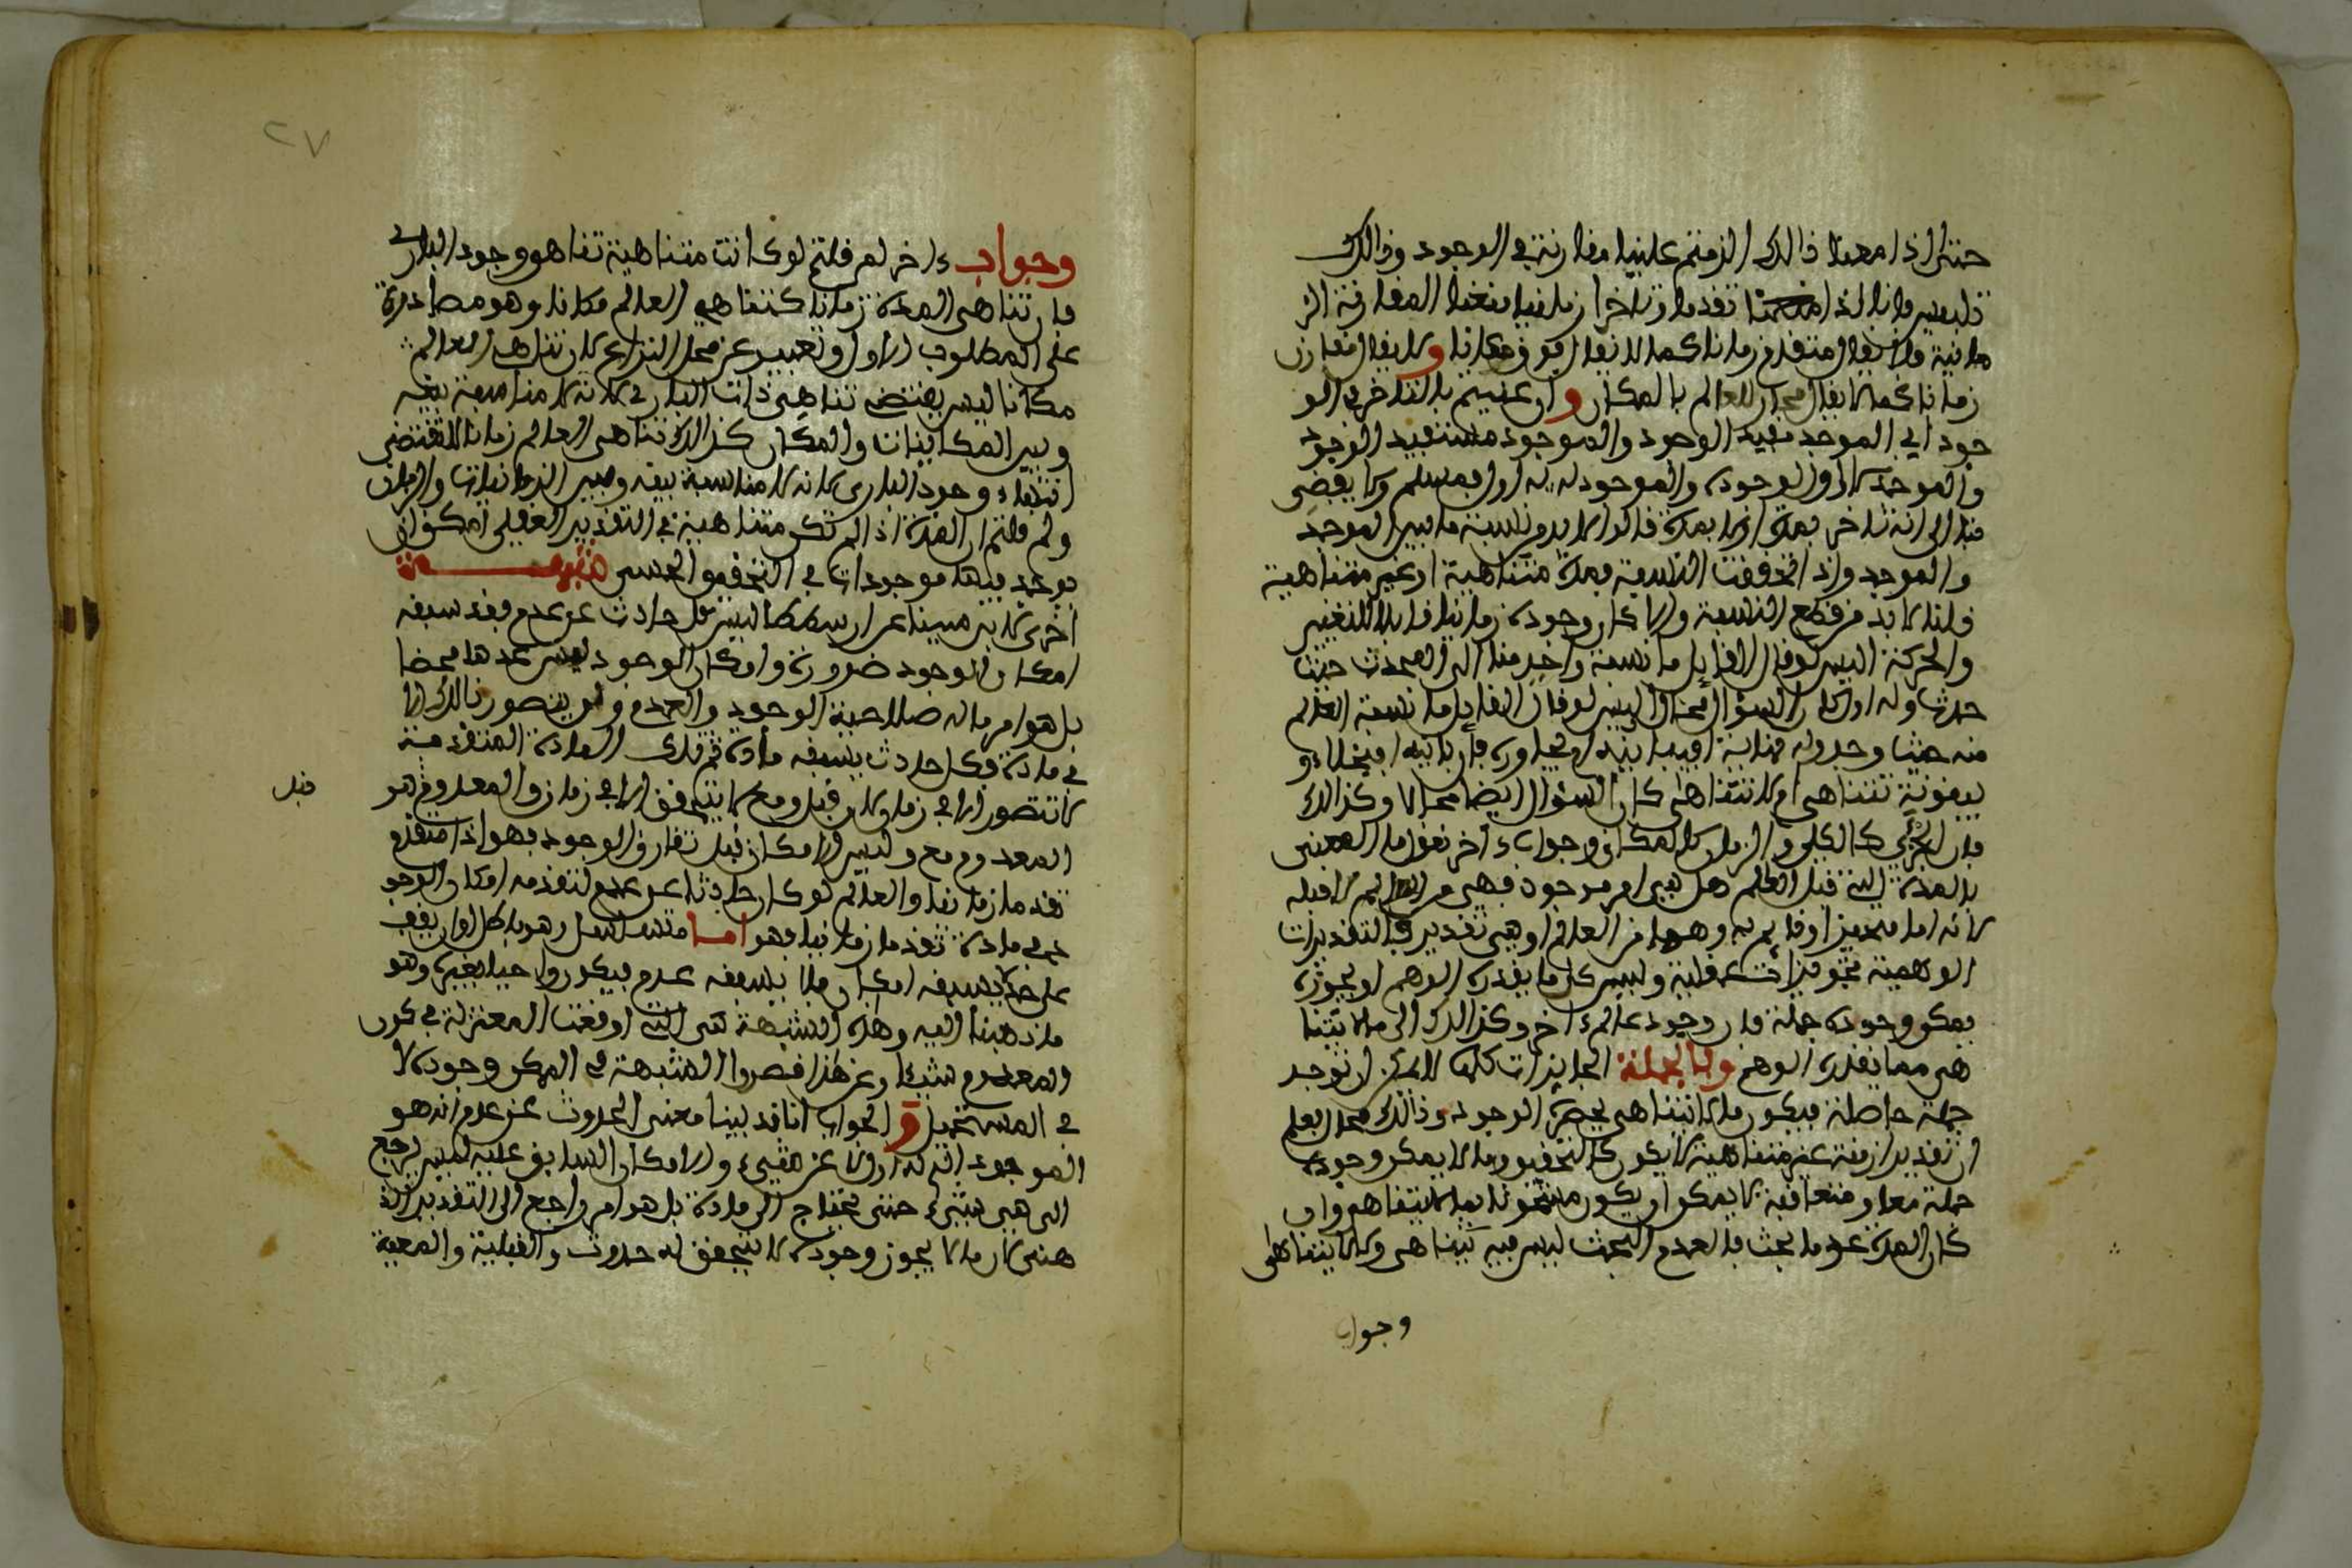 حتى اذا معنا ذالك الزمتم علينا مفارنة في الوجود وذالك
تلبيس فانا اذا منعنا تقدما وتاخرا زمانيا منعنا المفارنة الز
مانية فلا يقال متقدم زمانا كما لا يقال فوق مكانا ولا يقال مقارن
زمانا كما لا يقال مجاور للعالم بالمكان وان عنيتم بالتاخر في الو
جود اي الموجد مفيد الوجود والموجود مستفيد الوجود
والموجد لا اول لوجوده والموجود له اول فمسلم ولا يفضي
هذا الى انه تاخر بمدة او لا بمدة قالوا لا بد من نسبة ما بين الموجد
والموجد واذا تحققت النسبة فمدة متناهية او غير متناهية
قلنا لا بد من قطع النسبة والا كان وجوده زمانيا قابلا للتغير
والحركة اليس لو قال القايل ما نسبة واحد منا الى المحدث حيث
حدث وله اول كان السؤال محالا اليس لو قال القايل ما نسبة العالم
منه حيث وجد وله نهاية افيباينه او يجاوره فان باينه افبخلاء و
ببينونة تتناهى ام لا تتناهى كان السؤال ايضا محالا وكذالك
فان الجزئي كالكلي والزمان كالمكان وجواب ءاخر نقول ما المعني
بالمدة التي قبل العالم هل هي امر موجود فهي من العالم لا قبله
لانه اما متحيز او قايم به وهما من العالم او هي تقدير فالتقديرات
الوهمية تجويزات عقلية وليس كل ما يقدره الوهم او يجوزه
يمكن وجوده جملة فان وجود عالم ءاخر وكذالك الى ما لا يتنا
هى مما يقدره الوهم وبالجملة الجايزات كلها لا يمكن ان توجد
جملة حاصلة فيكون ما لا يتناهى يحصره الوجود وذالك محال بعلم
ان تقدير ازمنة غير متناهية لا يكون كالتحقيق وما لا يمكن وجوده
جملة معا او متعاقبة لا يمكن ان يكون مشحونا بما لا يتناهى وان
كان المدة عدما بحتا فالعدم البحت ليس فيه تناهى ولا لا يتناهى
وجواب
٢٧
وجواب ءاخر لم قلتم لو كانت متناهية تناهى وجود الباري
فان تناهى المدة زمانا كتناهى العالم مكانا وهو مصادرة
على المطلوب الاول وتعبير عن محل النزاع لان تناهى العالم
مكانا ليس يقتضي تناهي ذات الباري لانه لا مناسبة بينه
وبين المكانيات والمكان كذالك تناهى العالم زمانا لا يقتضي
انتهاء وجود الباري لانه لا مناسبة بينه وبين الزمانيات والزمان
ولم قلتم ان المدة اذا لم تكن متناهية في التقدير العقلي امكن ان
يوجد فيها موجودات في التحقيق الحسي شبهة
اخرى لابن سينا عن ارسطاطاليس كل حادث عن عدم فقد سبقه
امكان الوجود ضرورة وامكان الوجود ليس عدما محضا
بل هو امر ما له صلاحية الوجود والعدم ولن يتصور ذالك الا
في مادة فكل حادث يسبقه مادة ثم تلك المادة المتقدمة
لا تتصور الا في زمان لان قبل ومع لا يتحقق الا في زمان والمعدوم هو قبل
المعدوم مع وليس الامكان قبل تقارن الوجود فهو اذا متقدم
تقدما زمانيا والعالم لو كان حادثا عن عدم لتقدمه امكان الوجو
د في مادة تقدما زمانيا فهو اما متسلسل وهو باطل او ان يقف
على حد لا يسبقه امكان فلا يسبقه عدم فيكون واجبا بغيره وهو
ما ذهبنا اليه وهذه الشبهة هي التي اوقعت المعتزلة في كون
المعدوم شيئا وعن هذا قصروا الشبهة في الممكن وجوده لا
في المستحيل و الجواب انا قد بينا معنى الحدوث عن عدم انه هو
الموجود الذي له اول لا عن شيء والامكان السابق عليه ليس يرجع
الى هي شيء حتى يحتاج الى مادة بل هو امر راجع الى التقدير الذ
هني لان ما لا يجوز وجوده لا يتحقق له حدوث والقبلية والمعية